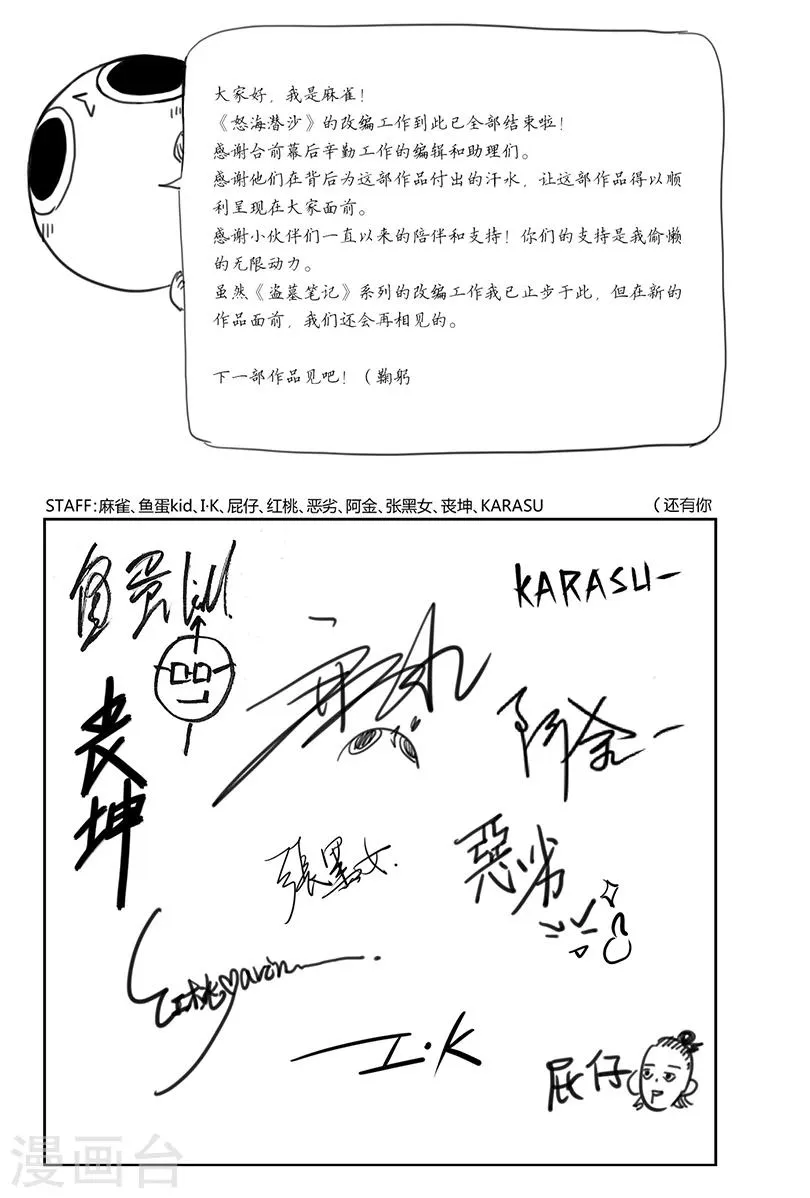 大家好，我是麻雀！
《怒海潜沙》的改编工作到此已全部结束啦！
感谢台前幕后辛勤工作的编辑和助理们。
感谢他们在背后为这部作品付出的汗水，让这部作品得以顺
利呈现在大家面前。
感谢小伙伴们一直以来的陪伴和支持！你们的支持是我偷懒
的无限动力。
虽然《盗墓笔记》系列的改编工作我已止步于此，但在新的
作品面前，我们还会再相见的。
下一部作品见吧！（鞠躬
STAFF:麻雀、鱼蛋kid、I·K、屁仔、红桃、恶劣、阿金、张黑女、丧坤、KARASU （还有你
鱼蛋kid
KARASU
丧坤
阿金
張黑女.
惡劣
I·K
屁仔
漫画台